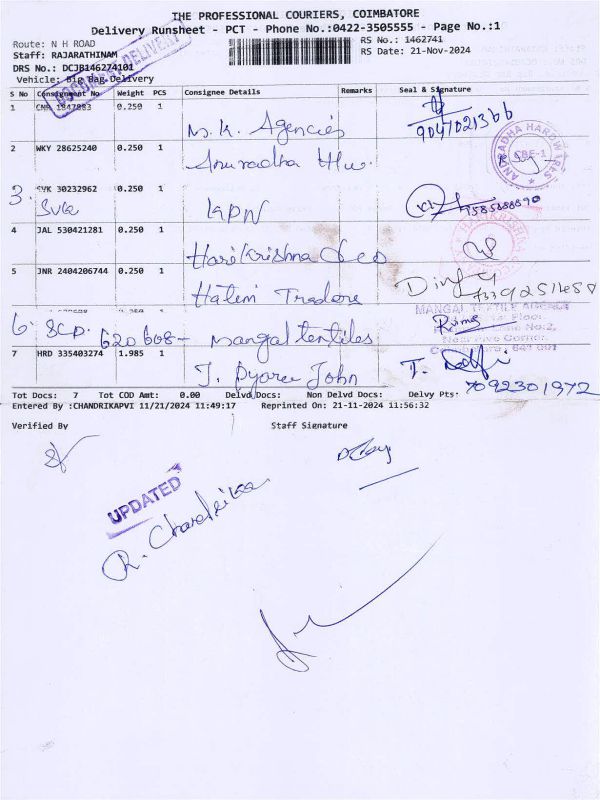 THE PROFESSIONAL COURIERS, COIMBATORE
Delivery Runsheet - PCT - Phone No.:0422-3505555 - Page No.:1
Route: N H ROAD RS No.: 1462741
Staff: RAJARATHINAM RS Date: 21-Nov-2024
DRS No.: DCJB146274101
Vehicle: Big Bag Delivery
DOCUMENT DELIVERY
S No Consignment No Weight PCS Consignee Details Remarks Seal & Signature
1 0.250 1 M.K. Agencies
2 WKY 28625240 0.250 1 Anuradha Hw.
ANURADHA HARDWARES CBE-1
3. SVK 30232962 0.250 1 KPN
SVK
4 JAL 530421281 0.250 1 Harikrishna &co
5 JNR 2404206744 0.250 1 Hatim Tradere
MANGAL TEXTILE AGENCY
1st Floor,
Lane No:2,
Corner,
641 001
6. SCP. 620668- Mangal textiles
7 HRD 335403274 1.985 1 T. Pyaree John T.
7092301972
Tot Docs: 7 Tot COD Amt: 0.00 Delvd Docs: Non Delvd Docs: Delvy Pts:
Entered By :CHANDRIKAPVI 11/21/2024 11:49:17 Reprinted On: 21-11-2024 11:56:32
Verified By Staff Signature
UPDATED
R. Chandrika